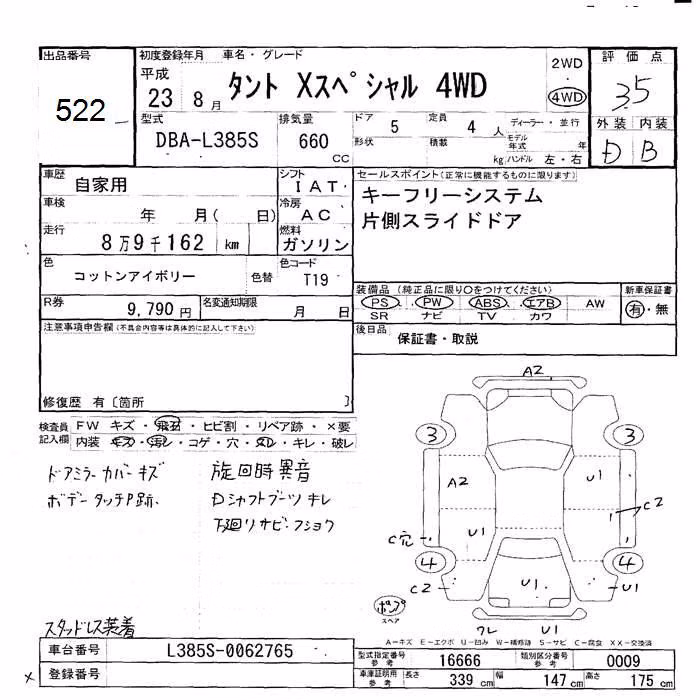 出品番号
522
初度登録年月 車名・グレード
平成
23 8月
タント Xスペシャル 4WD
2WD
・
4WD
評価点
3.5
外装 内装
D B
型式
DBA-L385S
排気量
660
CC
ドア
5
定員
4 人
形状
積載
kg
ディーラー・並行
モデル年式 年
ハンドル 左・右
車歴
自家用
シフト
IAT
車検
年 月( 日)
冷房
AC
走行
8万9千162 km
燃料
ガソリン
色
コットンアイボリー
色替
色コード
T19
R券
9,790円
名変通知期限
月 日
セールスポイント(正常に機能するものに限ります)
キーフリーシステム
片側スライドドア
装備品(純正品に限り○をつけてください)
PS・PW・ABS・エアB・AW
SR ナビ TV カワ
新車保証書
有・無
後日品
保証書・取説
注意事項申告欄(不具合内容等は具体的に記入して下さい)
修復歴 有〔箇所 〕
検査員記入欄
FW キズ・飛石・ヒビ割・リペア跡・×要
内装 キズ・汚レ・コゲ・穴・スレ・キレ・破レ
ドアミラーカバーキズ
ボデータッチP跡.
旋回時異音
Dシャフトブーツキレ
下廻りサビ・フショク
スタッドレス装着
A2
3 3
A2 U1
C2
U1
C穴
4 4
C2 U1 U1
スペア
ワレ U1
A-キズ E-エクボ U-凹み W-補修跡 S-サビ C-腐食 XX-交換済
車台番号
L385S-0062765
登録番号
型式指定番号
参考
16666
類別区分番号
参考
0009
車庫証明用
参考
長さ 339 cm 幅 147 cm 高さ 175 cm
×